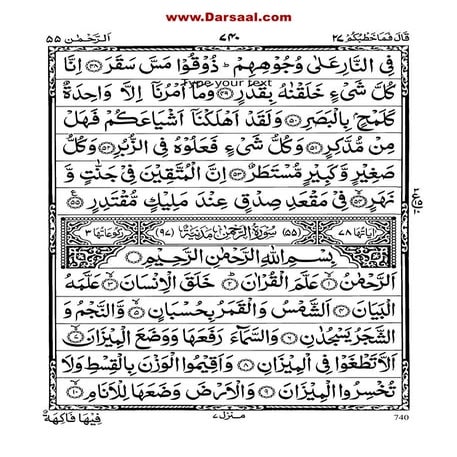 www.Darsaal.com
قَالَ فَمَا خَطْبُكُمْ ٢٧
٧٤٠
اَلرَّحْمٰن ٥٥
فِى النَّارِ عَلٰى وُجُوْهِهِمْ ؕ ذُوْقُوْا مَسَّ سَقَرَ ﴿۴۸﴾ اِنَّا
Type your text
كُلَّ شَىْءٍ خَلَقْنٰهُ بِقَدَرٍ ﴿۴۹﴾ وَمَاۤ اَمْرُنَاۤ اِلَّا وَاحِدَةٌ
كَلَمْحٍۭ بِالْبَصَرِ ﴿۵۰﴾ وَلَقَدْ اَهْلَكْنَاۤ اَشْيَاعَكُمْ فَهَلْ
مِنْ مُّدَّكِرٍ ﴿۵۱﴾ وَكُلُّ شَىْءٍ فَعَلُوْهُ فِى الزُّبُرِ ﴿۵۲﴾ وَكُلُّ
صَغِيْرٍ وَّكَبِيْرٍ مُّسْتَطَرٌ ﴿۵۳﴾ اِنَّ الْمُتَّقِيْنَ فِىْ جَنّٰتٍ وَّ
نَهَرٍ ﴿۵۴﴾ فِىْ مَقْعَدِ صِدْقٍ عِنْدَ مَلِيْكٍ مُّقْتَدِرٍ ﴿۵۵﴾
اٰيَاتُهَا ٧٨ (٥٥) سُوْرَةُ الرَّحْمٰنِ مَدَنِيَّةٌ (٩٧) رُكُوْعَاتُهَا ٣
بِسْمِ اللهِ الرَّحْمٰنِ الرَّحِيْمِ
اَلرَّحْمٰنُ ﴿۱﴾ عَلَّمَ الْقُرْاٰنَ ﴿۲﴾ خَلَقَ الْاِنْسَانَ ﴿۳﴾ عَلَّمَهُ
الْبَيَانَ ﴿۴﴾ اَلشَّمْسُ وَالْقَمَرُ بِحُسْبَانٍ ﴿۵﴾ وَّالنَّجْمُ وَ
الشَّجَرُ يَسْجُدٰنِ ﴿۶﴾ وَالسَّمَآءَ رَفَعَهَا وَوَضَعَ الْمِيْزَانَ ﴿۷﴾
اَلَّا تَطْغَوْا فِى الْمِيْزَانِ ﴿۸﴾ وَاَقِيْمُوا الْوَزْنَ بِالْقِسْطِ وَلَا
تُخْسِرُوا الْمِيْزَانَ ﴿۹﴾ وَالْاَرْضَ وَضَعَهَا لِلْاَنَامِ ﴿۱۰﴾
فِيْهَا فَاكِهَةٌ
منزل ٧
740